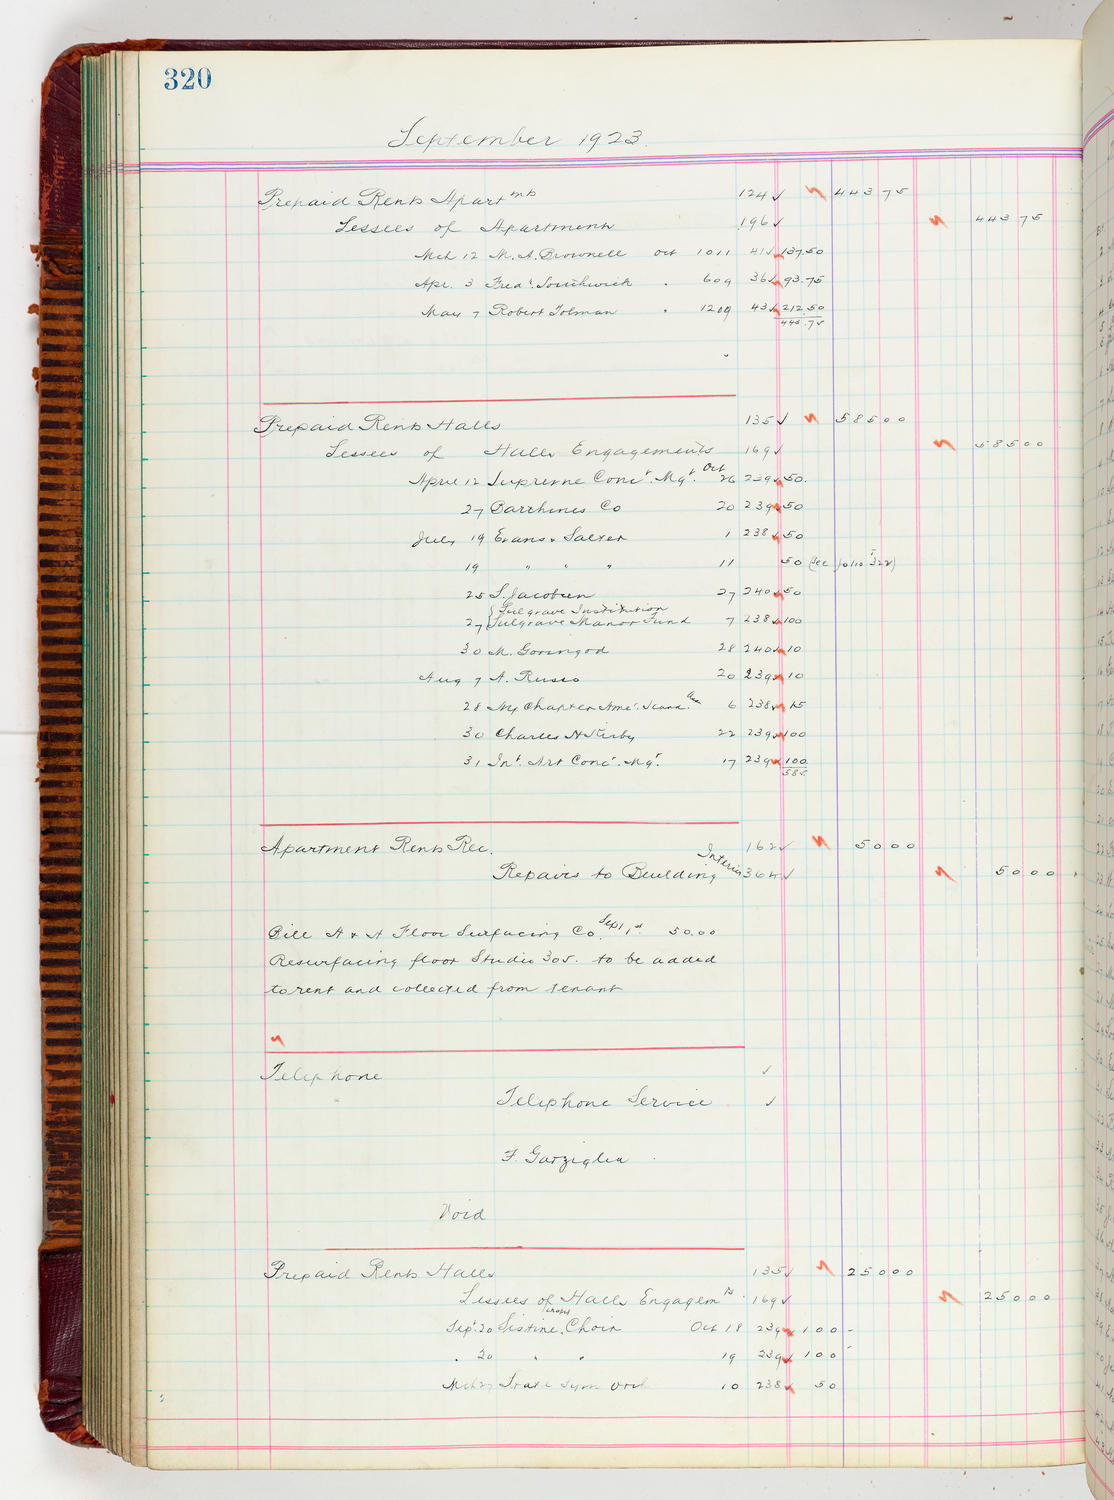 320
September 1923.
Prepaid Rents Apartmts 124 ✓ 443 75
Lessees of Apartments 196 ✓ 443 75
Mch 12 M. A. Brownell Oct 1011 41 ✓ 137.50
Apr. 3 Fred'k Southwick " 609 36 ✓ 93.75
May 7 Robert Tolman " 1209 43 ✓ 212.50
443.75
Prepaid Rents Halls 135 ✓ 585 00
Lessees of Halls Engagements 169 ✓ 585 00
April 12 Supreme Conct. Mgt. Oct 26 239 ✓ 50.
27 Co 20 239 ✓ 50
July 19 Evans & Salter 1 238 ✓ 50
19 " " " 11 50 (See folio 322)
25 S. Jacobsen 27 240 ✓ 50
Sulgrave Institution
27 Sulgrave Manor Fund 7 238 ✓ 100
30 M. 28 240 ✓ 10
Aug 7 A. Russo 20 239 ✓ 10
28 NY Chapter Ame'. Scand. 6 238 ✓ 15
30 Charles N Kirby 22 239 ✓ 100
31 Int. Art Conct. Mgt. 17 239 ✓ 100
585
Apartment Rents Rec. 162 ✓ 50 00
Repairs to Building Interior 364 ✓ 50 00
Bill A & A Floor Surfacing Co. Sept 1st. 50.00
Resurfacing floor Studio 305. to be added
to rent and collected from tenant
Telephone ✓
Telephone Service ✓
F. Garziglia
Void
Prepaid Rents Halls 135 ✓ 250 00
Lessees of Halls Engagemts 169 ✓ 250 00
Sept. 20 Sistine Choir Oct 18 239 ✓ 100 -
" 20 " " 19 239 ✓ 100 -
Mch 27 State Sym Orch 10 238 ✓ 50